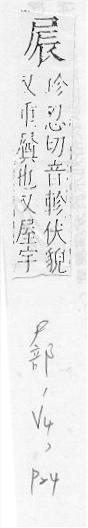 屒
珍忍切音軫伏貌
又重也又屋宇
尸部, V4, P24